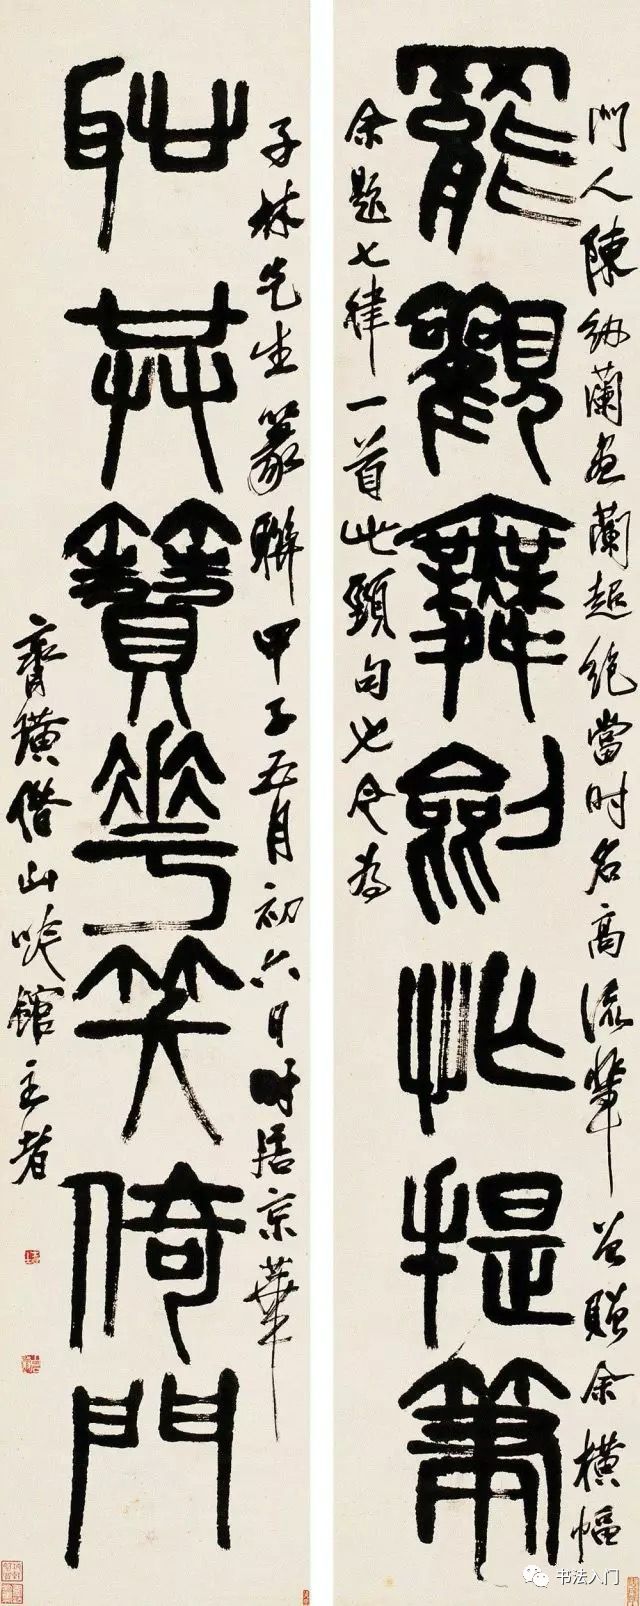 門人陳紉蘭畫蘭超絕當時名高流輩曾贈余橫幅
罷觀舞劍忙提筆
余題七律一首此頸句也今為
子林先生篆聯甲子五月初六日時居京華
恥共簪花笑倚門
齊璜借山吟館主者
书法入门